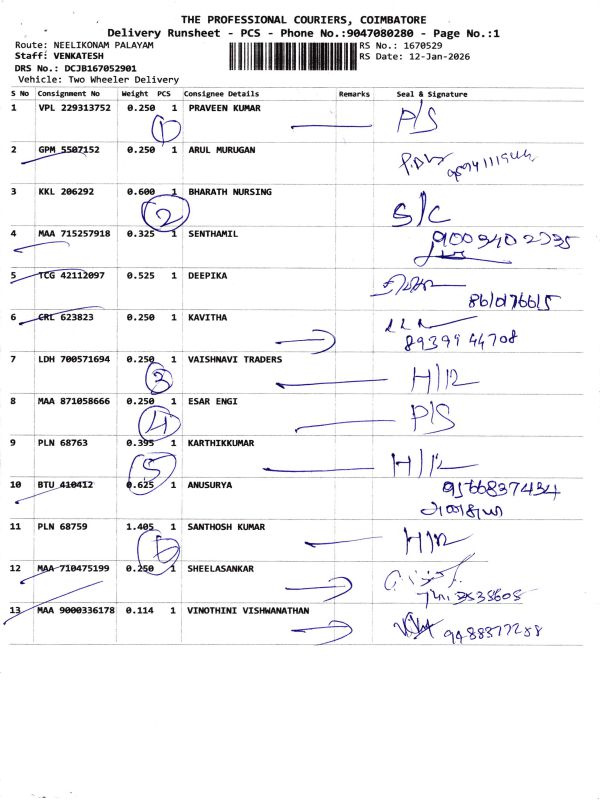 THE PROFESSIONAL COURIERS, COIMBATORE
Delivery Runsheet - PCS - Phone No.:9047080280 - Page No.:1
Route: NEELIKONAM PALAYAM RS No.: 1670529
Staff: VENKATESH RS Date: 12-Jan-2026
DRS No.: DCJB167052901
Vehicle: Two Wheeler Delivery
S No Consignment No Weight PCS Consignee Details Remarks Seal & Signature
1 VPL 229313752 0.250 1 PRAVEEN KUMAR P/S
1
2 GPM 5507152 0.250 1 ARUL MURUGAN
3 KKL 206292 0.600 1 BHARATH NURSING S/C
2
4 MAA 715257918 0.325 1 SENTHAMIL 9003402735
5 TCG 42112097 0.525 1 DEEPIKA
6 CRL 623823 0.250 1 KAVITHA
8939944708
7 LDH 700571694 0.250 1 VAISHNAVI TRADERS H/R
3
8 MAA 871058666 0.250 1 ESAR ENGI P/S
4
9 PLN 68763 0.395 1 KARTHIKKUMAR H/R
5
10 BTU 410412 0.625 1 ANUSURYA 9566837434
11 PLN 68759 1.405 1 SANTHOSH KUMAR H/R
6
12 MAA 710475199 0.250 1 SHEELASANKAR
13 MAA 9000336178 0.114 1 VINOTHINI VISHWANATHAN 9488377288